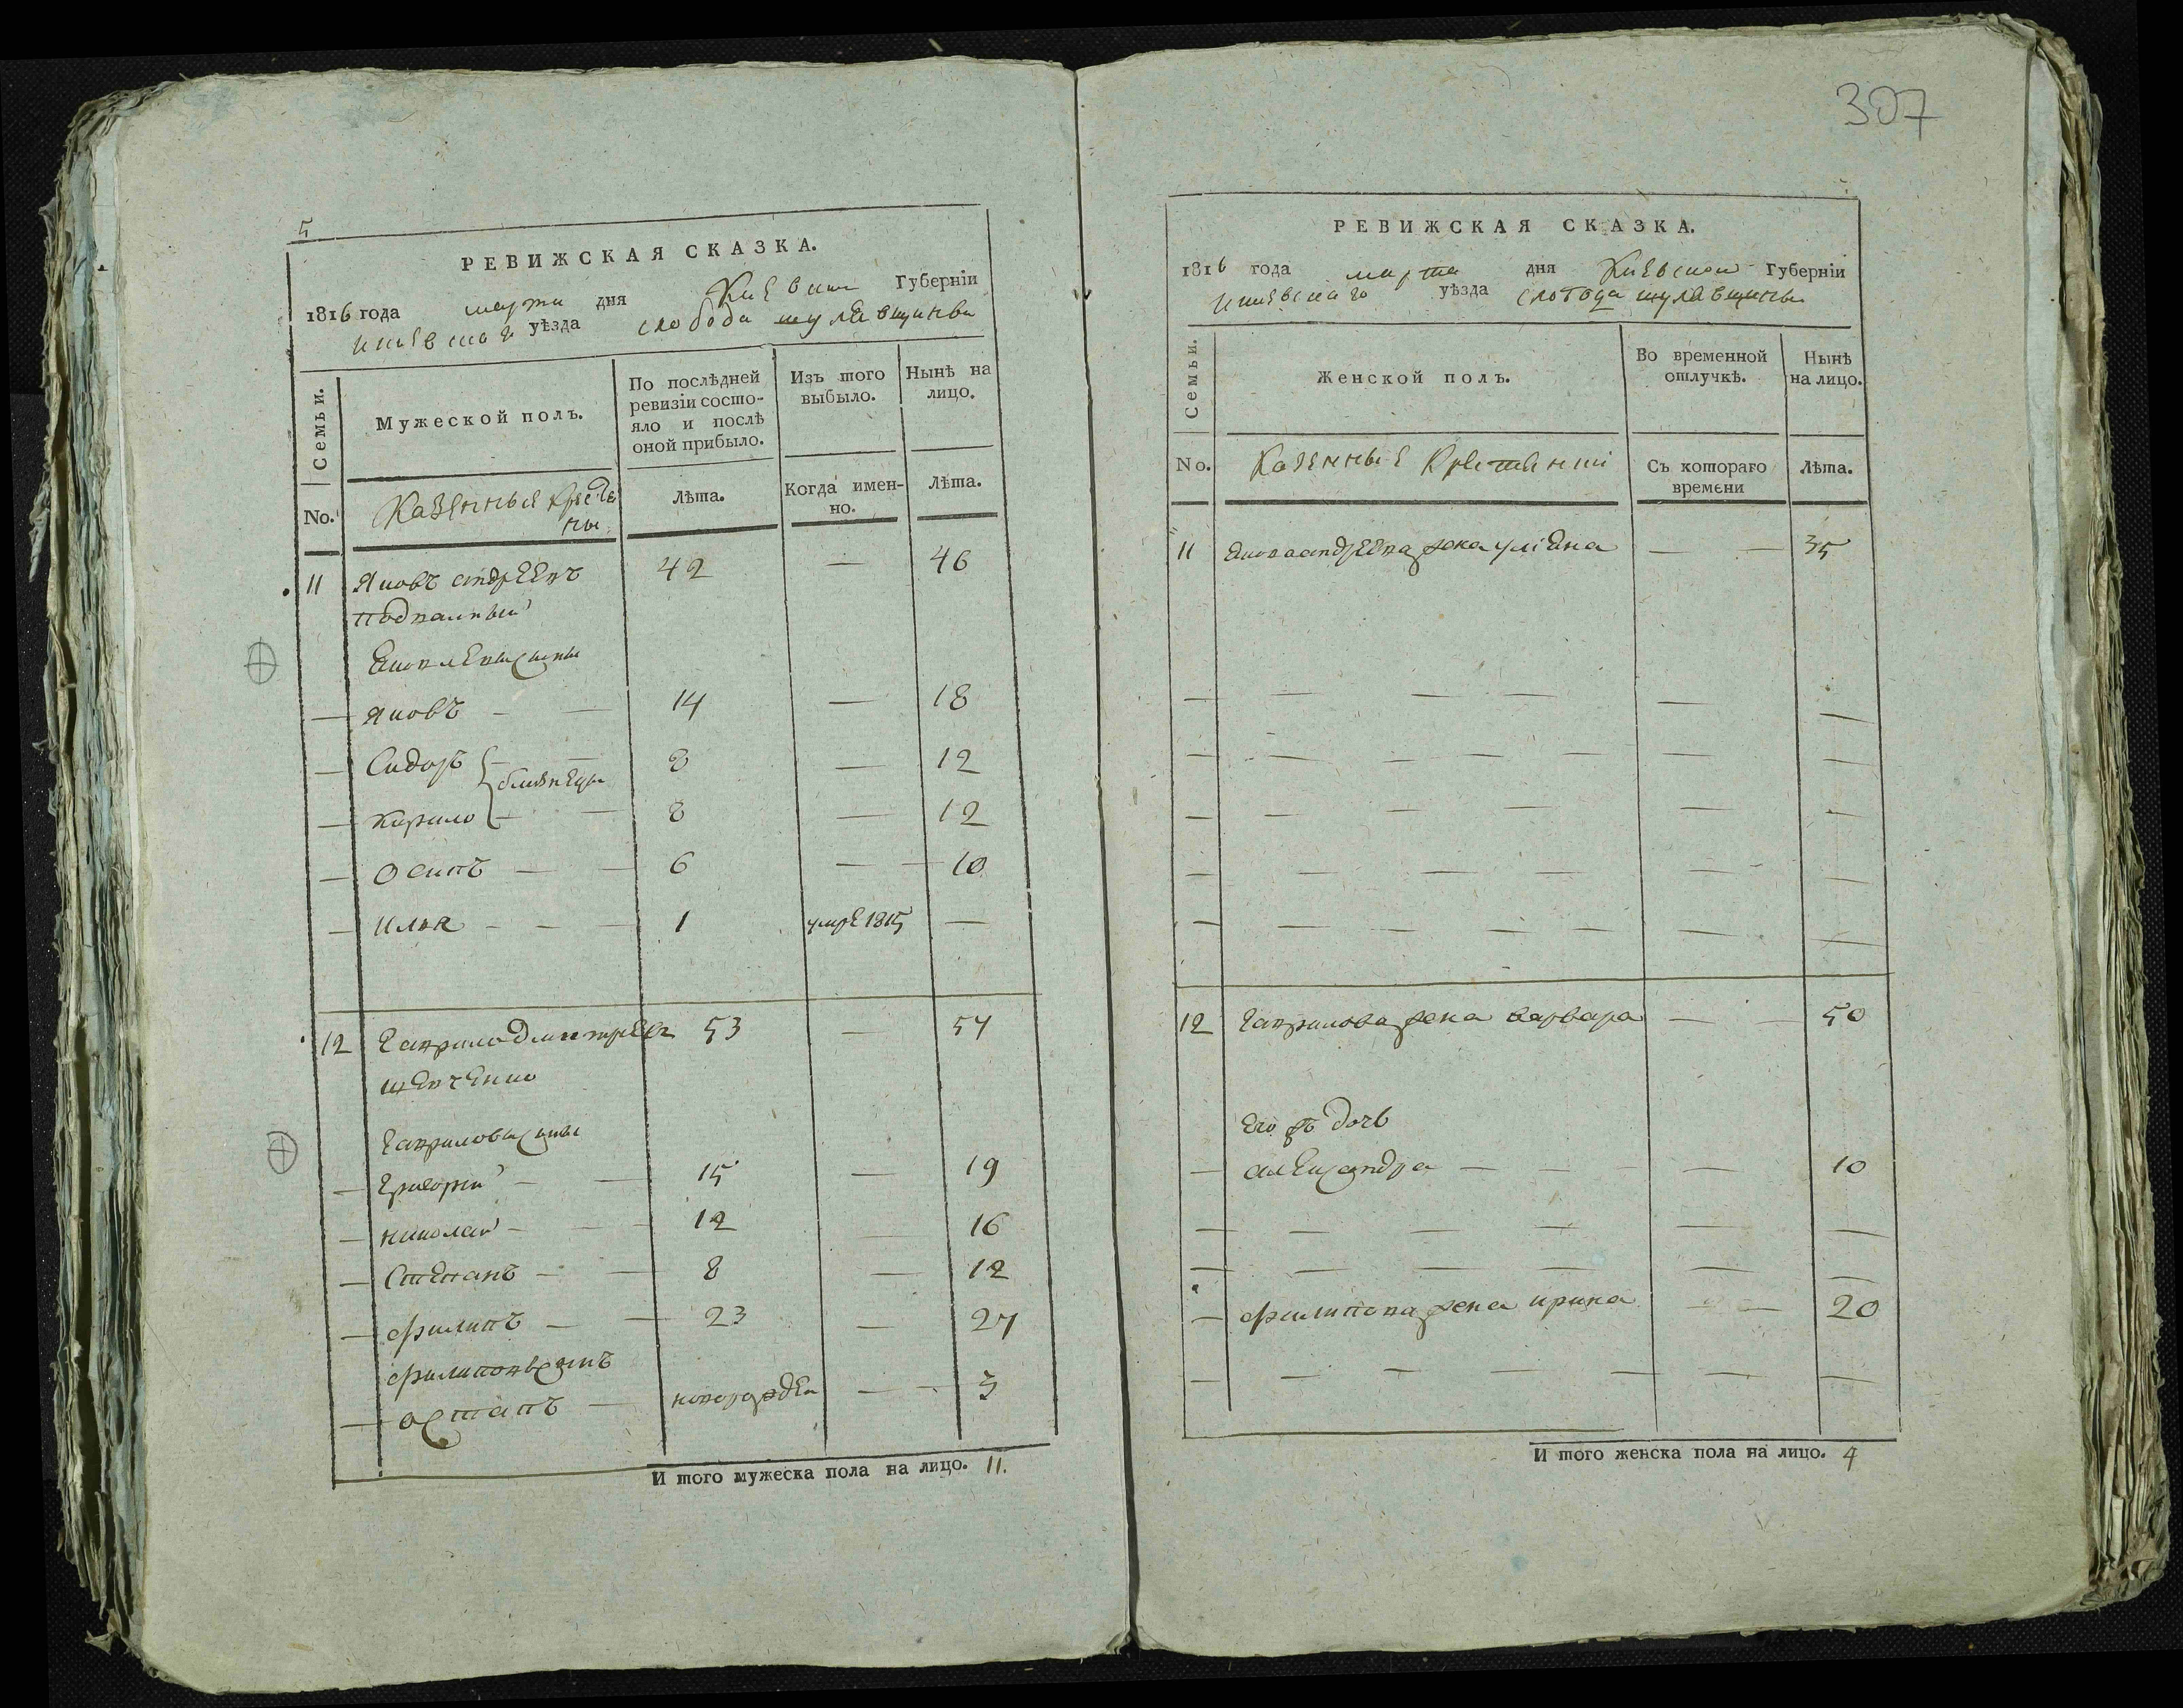 307
5
РЕВИЖСКАЯ СКАЗКА.
1816 года марта дня Киевской Губернiи
киевского уѣзда слобода шулявщины
Семьи. Мужеской полъ. По послѣдней ревизiи состояло и послѣ оной прибыло. Изъ того выбыло. Нынѣ на лицо.
No. Казенные крестьяны Лѣта. Когда именно. Лѣта.
11 Яковъ андреевъ 42 — 46
подпалный
Яковлевы сыны
— яковъ — — 14 — 18
— Сидоръ — — 8 — 12
близнецы
— кирило — — 8 — 12
— осипъ — — 6 — — 10
— илья — — — 1 умре 1815 —
12 гаврило дмитреевъ 53 — 57
шевченко
гавриловы сыны
— григорий — — 15 — 19
— николай — — — 12 — 16
— Степанъ — — 8 — 12
— филипъ — — 23 — 27
филиповъ сынъ
— остапъ — новорожден — — 3
И того мужеска пола на лицо. 11.
РЕВИЖСКАЯ СКАЗКА.
1816 года марта дня Киевской Губернiи
киевскаго уѣзда слобода шулявщины
Семьи. Женской полъ. Во временной отлучкѣ. Нынѣ на лицо.
No. Казенные Крестянки Съ котораго времени Лѣта.
11 Якова андреева жена улiяна — — 35
12 гаврилова жена варвара — — 50
его жъ дочь
— александра — — — — 10
— филипова жена ирина — — 20
И того женска пола на лицо. 4